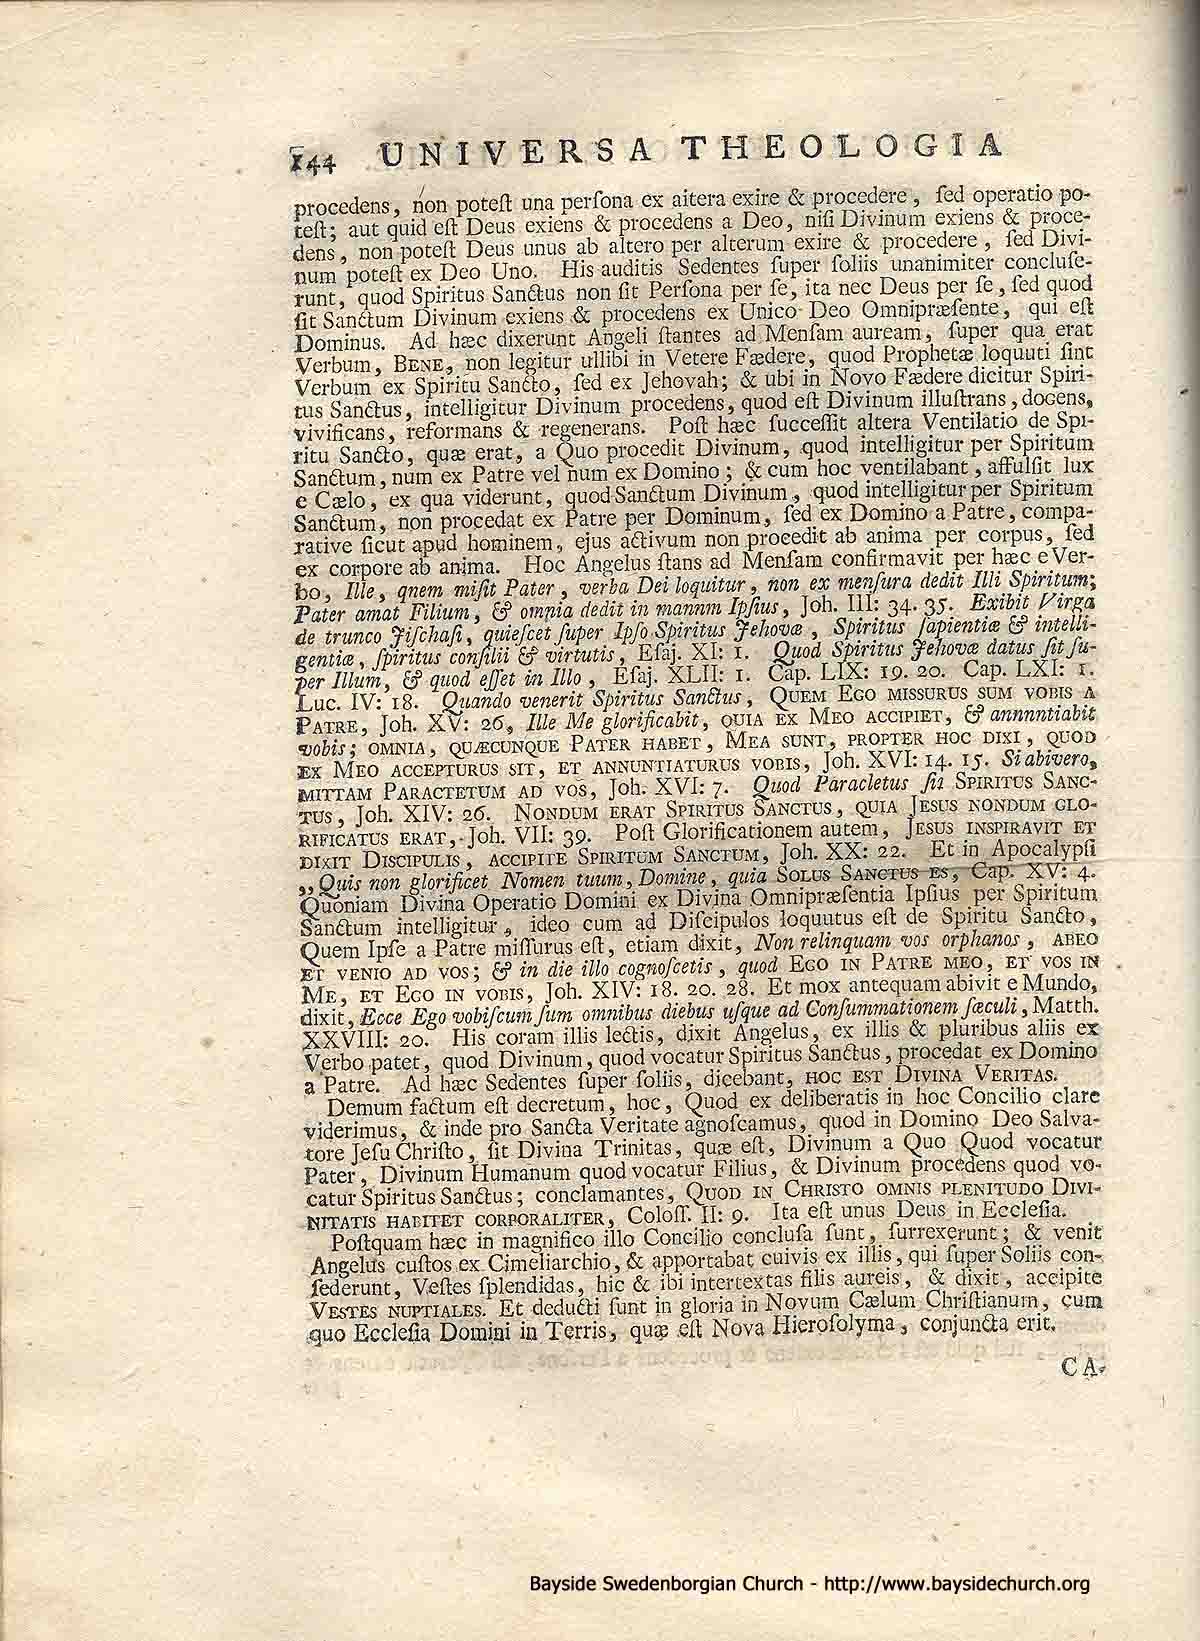 144 UNIVERSA THEOLOGIA
procedens, non poteſt una perſona ex aitera exire & procedere, ſed operatio po-
teſt; aut quid eſt Deus exiens & procedens a Deo, niſi Divinum exiens & proce-
dens, non poteſt Deus unus ab altero per alterum exire & procedere, ſed Divi-
num poteſt ex Deo Uno. His auditis Sedentes ſuper ſoliis unanimiter concluſe-
runt, quod Spiritus Sanctus non ſit Perſona per ſe, ita nec Deus per ſe, ſed quod
ſit Sanctum Divinum exiens & procedens ex Unico Deo Omnipræſente, qui eſt
Dominus. Ad hæc dixerunt Angeli ſtantes ad Menſam auream, ſuper qua erat
Verbum, BENE, non legitur ullibi in Vetere Fædere, quod Prophetæ loquuti ſint
Verbum ex Spiritu Sancto, ſed ex Jehovah; & ubi in Novo Fædere dicitur Spiri-
tus Sanctus, intelligitur Divinum procedens, quod eſt Divinum illuſtrans, docens,
vivificans, reformans & regenerans. Poſt hæc ſucceſſit altera Ventilatio de Spi-
ritu Sancto, quæ erat, a Quo procedit Divinum, quod intelligitur per Spiritum
Sanctum, num ex Patre vel num ex Domino; & cum hoc ventilabant, affulſit lux
e Cælo, ex qua viderunt, quod Sanctum Divinum, quod intelligitur per Spiritum
Sanctum, non procedat ex Patre per Dominum, ſed ex Domino a Patre, compa-
rative ſicut apud hominem, ejus activum non procedit ab anima per corpus, ſed
ex corpore ab anima. Hoc Angelus ſtans ad Menſam confirmavit per hæc e Ver-
bo, Ille, qnem miſit Pater, verba Dei loquitur, non ex menſura dedit Illi Spiritum;
Pater amat Filium, & omnia dedit in mannm Ipſius, Joh. III: 34. 35. Exibit Virga
de trunco Jiſchaſi, quieſcet ſuper Ipſo Spiritus Jehovæ, Spiritus ſapientiæ & intelli-
gentiæ, ſpiritus conſilii & virtutis, Eſaj. XI: 1. Quod Spiritus Jehovæ datus ſit ſu-
per Illum, & quod eſſet in Illo, Eſaj. XLII: 1. Cap. LIX: 19. 20. Cap. LXI: 1.
Luc. IV: 18. Quando venerit Spiritus Sanctus, QUEM EGO MISSURUS SUM VOBIS A
PATRE, Joh. XV: 26, Ille Me glorificabit, QUIA EX MEO ACCIPIET, & annnntiabit
vobis; OMNIA, QUÆCUNQUE PATER HABET, MEA SUNT, PROPTER HOC DIXI, QUOD
EX MEO ACCEPTURUS SIT, ET ANNUNTIATURUS VOBIS, Joh. XVI: 14. 15. Si abivero,
MITTAM PARACTETUM AD VOS, Joh. XVI: 7. Quod Paracletus ſit SPIRITUS SANC-
TUS, Joh. XIV: 26. NONDUM ERAT SPIRITUS SANCTUS, QUIA JESUS NONDUM GLO-
RIFICATUS ERAT, Joh. VII: 39. Poſt Glorificationem autem, JESUS INSPIRAVIT ET
DIXIT DISCIPULIS, ACCIPITE SPIRITUM SANCTUM, Joh. XX: 22. Et in Apocalypſi
„Quis non glorificet Nomen tuum, Domine, quia SOLUS SANCTUS ES, Cap. XV: 4.
Quoniam Divina Operatio Domini ex Divina Omnipræſentia Ipſius per Spiritum
Sanctum intelligitur, ideo cum ad Diſcipulos loquutus eſt de Spiritu Sancto,
Quem Ipſe a Patre miſſurus eſt, etiam dixit, Non relinquam vos orphanos, ABEO
ET VENIO AD VOS; & in die illo cognoſcetis, quod EGO IN PATRE MEO, ET VOS IN
ME, ET EGO IN VOBIS, Joh. XIV: 18. 20. 28. Et mox antequam abivit e Mundo,
dixit, Ecce Ego vobiſcum ſum omnibus diebus uſque ad Conſummationem ſæculi, Matth.
XXVIII: 20. His coram illis lectis, dixit Angelus, ex illis & pluribus aliis ex
Verbo patet, quod Divinum, quod vocatur Spiritus Sanctus, procedat ex Domino
a Patre. Ad hæc Sedentes ſuper ſoliis, dicebant, HOC EST DIVINA VERITAS.
Demum factum eſt decretum, hoc, Quod ex deliberatis in hoc Concilio clare
viderimus, & inde pro Sancta Veritate agnoſcamus, quod in Domino Deo Salva-
tore Jeſu Chriſto, ſit Divina Trinitas, quæ eſt, Divinum a Quo Quod vocatur
Pater, Divinum Humanum quod vocatur Filius, & Divinum procedens quod vo-
catur Spiritus Sanctus; conclamantes, QUOD IN CHRISTO OMNIS PLENITUDO DIVI-
NITATIS HABITET CORPORALITER, Coloſſ. II: 9. Ita eſt unus Deus in Eccleſia.
Poſtquam hæc in magnifico illo Concilio concluſa ſunt, ſurrexerunt; & venit
Angelus cuſtos ex Cimeliarchio, & apportabat cuivis ex illis, qui ſuper Soliis con-
ſederunt, Veſtes ſplendidas, hic & ibi intertextas filis aureis, & dixit, accipite
VESTES NUPTIALES. Et deducti ſunt in gloria in Novum Cælum Chriſtianum, cum
quo Eccleſia Domini in Terris, quæ eſt Nova Hieroſolyma, conjuncta erit.
CA-
Bayside Swedenborgian Church - http://www.baysidechurch.org